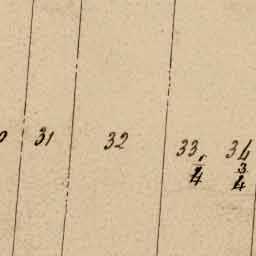 31 32 33 1/4 34 3/4